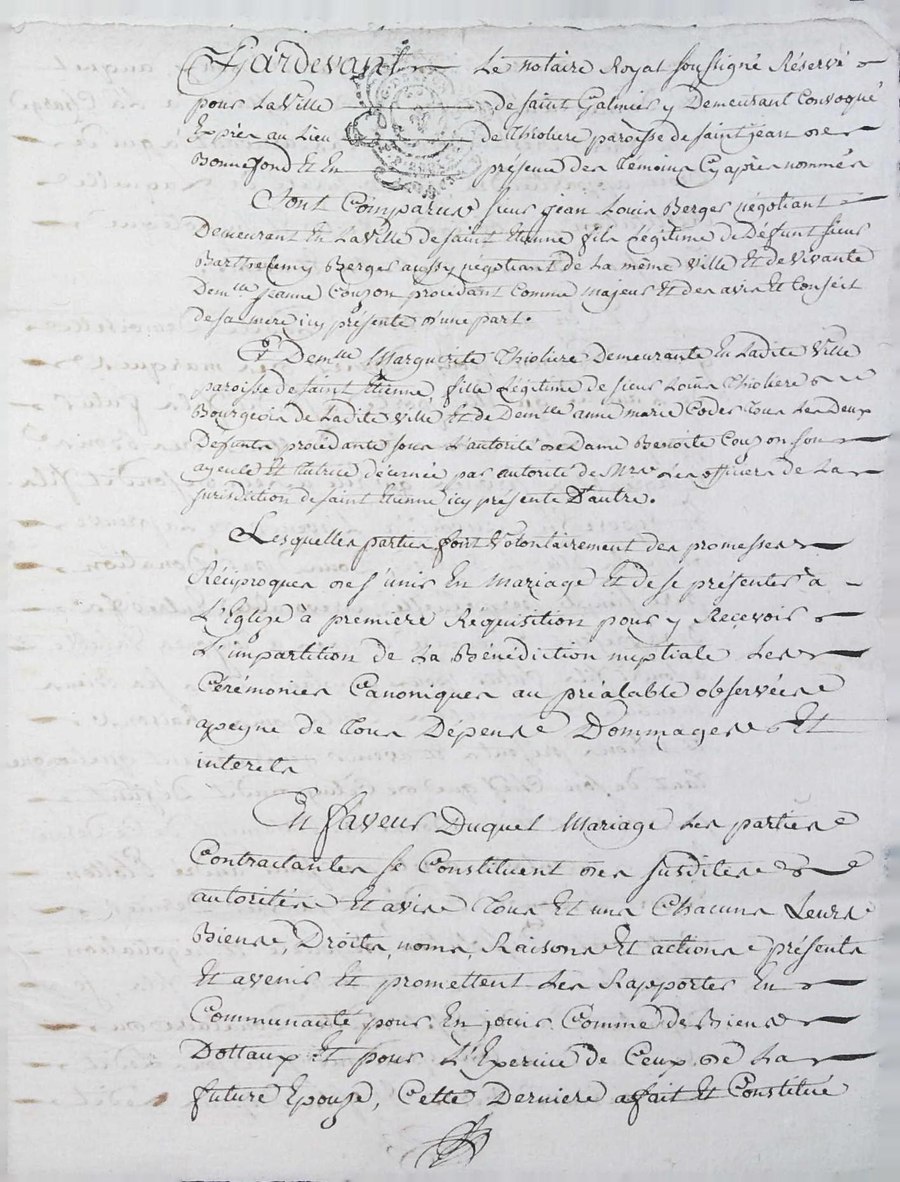 Pardevant Le notaire Royal soussigné Réservé
pour La Ville de saint Galmier y Demeurant Convoqué
Exprès au Lieu de Thioliere paroisse de saint jean de
Bonnefond Et En présence des temoins Cy après nommés
Sont Comparus sieur jean Louis Berger négotiant
Demeurant En La Ville de saint Etienne fils Légitime de Défunt sieur
Barthelemy Berger aussy négotiant de La même Ville Et de Vivante
Demlle Jeanne Coupon procédant Comme majeur Et des avis Et Conseil
de sa mere icy présente d'une part.
Et Demlle Marguerite Thioliere Demeurante En Ladite Ville
paroisse de saint Etienne, fille Légitime de sieur Louis Thioliere
Bourgeois de Ladite Ville Et de Demlle anne marie Codes tous Les Deux
Defunts procédante sous L'autorité de Dame Benoite Coupon son
ayeule Et tutrice décernée par autorité de Mrs Les officiers de La
jurisdiction de saint Etienne icy présente D'autre.
Lesquelles parties font Volontairement des promesses
Réciproques de s'unir En Mariage Et de se présenter à
L'Eglise à première Réquisition pour y Recevoir
L'impartition de La Bénédiction nuptiale Les
Cérémonies Canoniques au préalable observées
apeyne de tous Dépens Dommages Et
interets
En faveur Duquel Mariage Les parties
Contractantes se Constituent des susdites
autorités Et avis tous Et uns Chacuns Leurs
Biens, Droits, noms, Raisons Et actions présents
Et avenir Et promettent Les Rapporter En
Communauté pour En jouir Comme de Biens
Dottaux Et pour L'Exercice de Ceux de La
future Epouse, Cette Derniere a fait Et Constitué